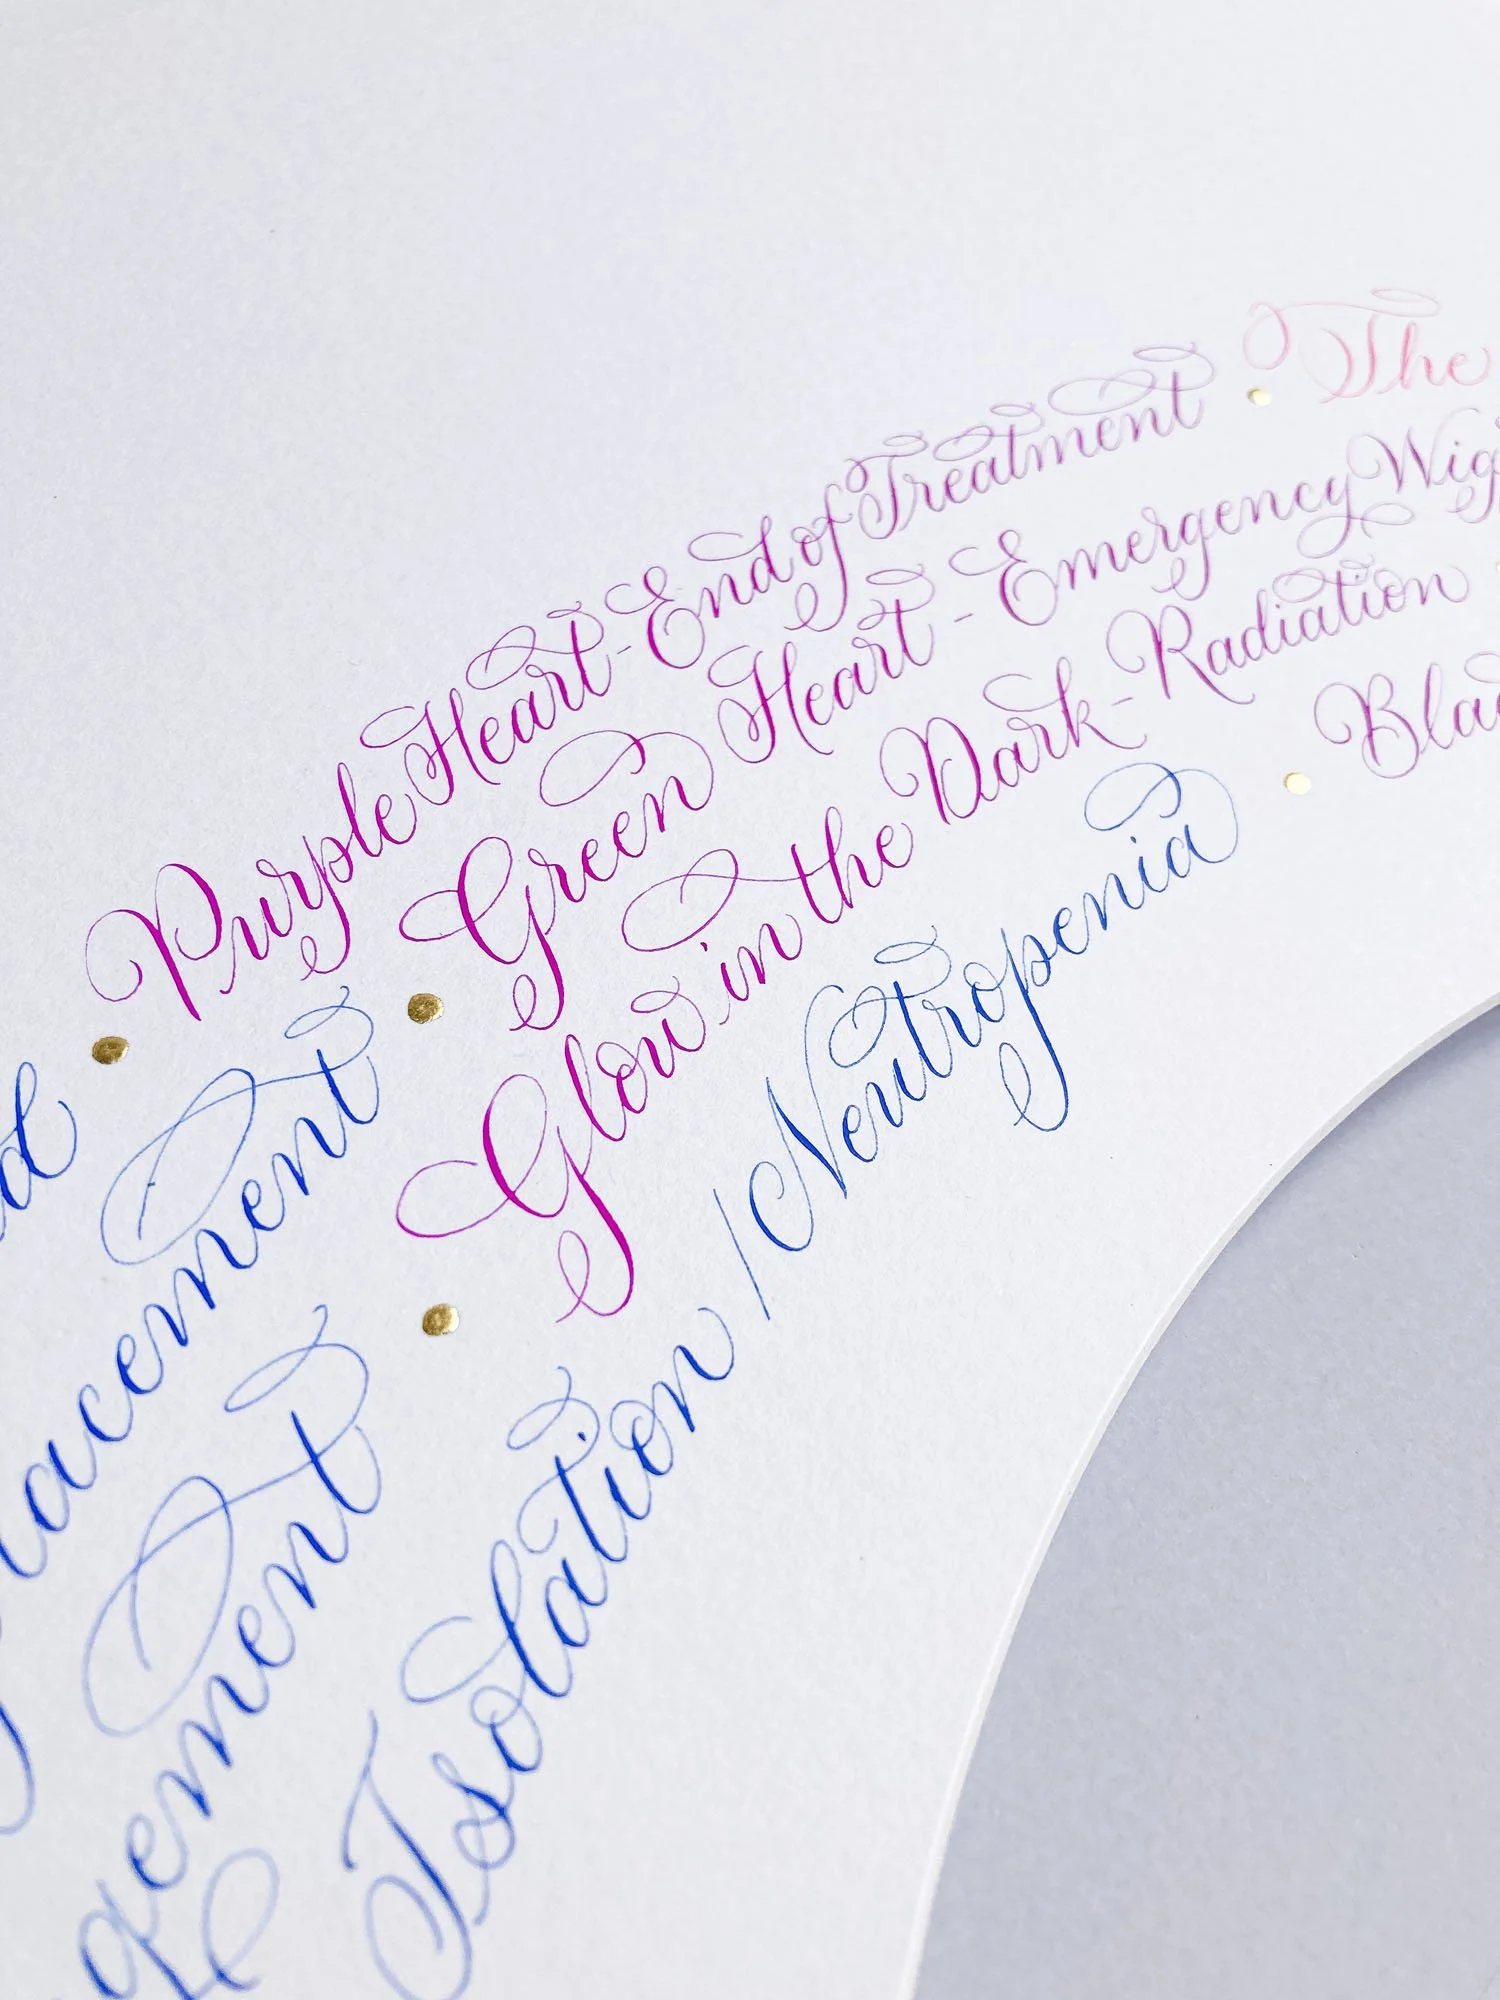 Purple Heart - End of Treatment • The
Green Heart - Emergency
Glow in the Dark - Radiation
Isolation / Neutropenia •